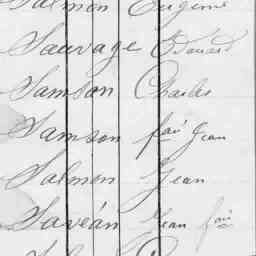 Salmon Eugène
Sauvage Edouard
Samson Charles
Samson Jean
Salmon Jean
Savéan Jean